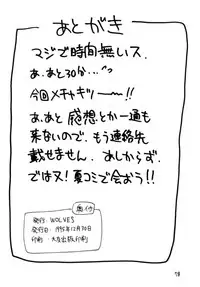 あとがき
マジで時間無いス.
あ.あと30分...
今回メチャギリーー!!
あ.あと 感想とか一通も
来ないので.もう連絡先
載せません.あしからず.
ではヌ!夏コミで会おう!!
奥付
発行: WOLVES
発行日: 1995年12月30日
印刷: 大友出版印刷